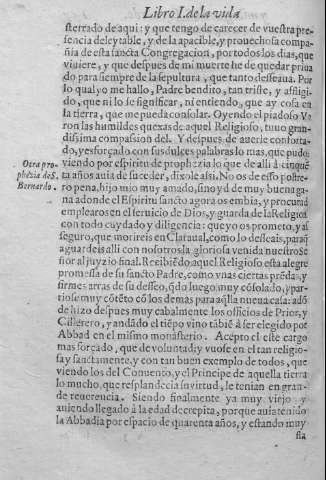 Libro I. de la vida
sterrado de aqui: y que tengo de carecer de vuestra pre-
sencia deleytable, y de la apacible, y prouechosa compa-
ñia de esta sancta Congregacion, por todos los dias, que
viuiere, y que despues de mi muerte he de quedar priua
do para siempre de la sepultura, que tanto desseaua. Por
lo qual yo me hallo, Padre bendito, tan triste, y afligi-
do, que ni lo se significar, ni entiendo, que ay cosa en
la tierra, que me pueda consolar. Oyendo el piadoso Va
ron las humildes quexas de aquel Religioso, tuuo gran-
dissima compassion del. Y despues de auerle conforta-
do, y esforçado con sus dulces palabras lo mas, que pudo,
viendo por espiritu de prophezia lo que de alli à cinquẽ
ta años auia de suceder, dixole assi. No os de esso postre-
ro pena, hijo mio muy amado, sino yd de muy buena ga-
na adonde el Espiritu sancto agora os embia, y procurad
emplearos en el seruicio de Dios, y guarda de la Religiõ
con todo cuydado y diligencia: que yo os prometo, y as
seguro, que morireis en Claraual, como lo desseais, paraq̃
aguardeis alli con nosotros la gloriosa venida nuestro Se
ñor al juyzio final. Recibiẽdo aquel Religioso esta alegre
promessa de su sancto Padre, como vnas ciertas prẽdas, y
firmes arras de su desseo, q̃do luego muy cõsolado, y par-
tiose muy cõtẽto cõ los demàs para aq̃lla nueua casa: adõ
de hizo despues muy cabalmente los officios de Prior, y
Cillerero, y andãdo el tiẽpo vino tãbiẽ à ser elegido por
Abbad en el mismo monasterio. Acepto el este cargo
mas forçado, que de voluntad; y vuose en el tan religio-
sa y sanctamente, y con tan buen exemplo de todos, que
viendo los del Conuento, y el Principe de aquella tierra
lo mucho, que resplandecia su virtud, le tenian en gran-
de reuerencia. Siendo finalmente ya muy viejo y
auiendo llegado à la edad decrepita, porque auia tenido
la Abbadia por espacio de quarenta años, y estando muy
sia
Otra pro-
phezia de S.
Bernardo.